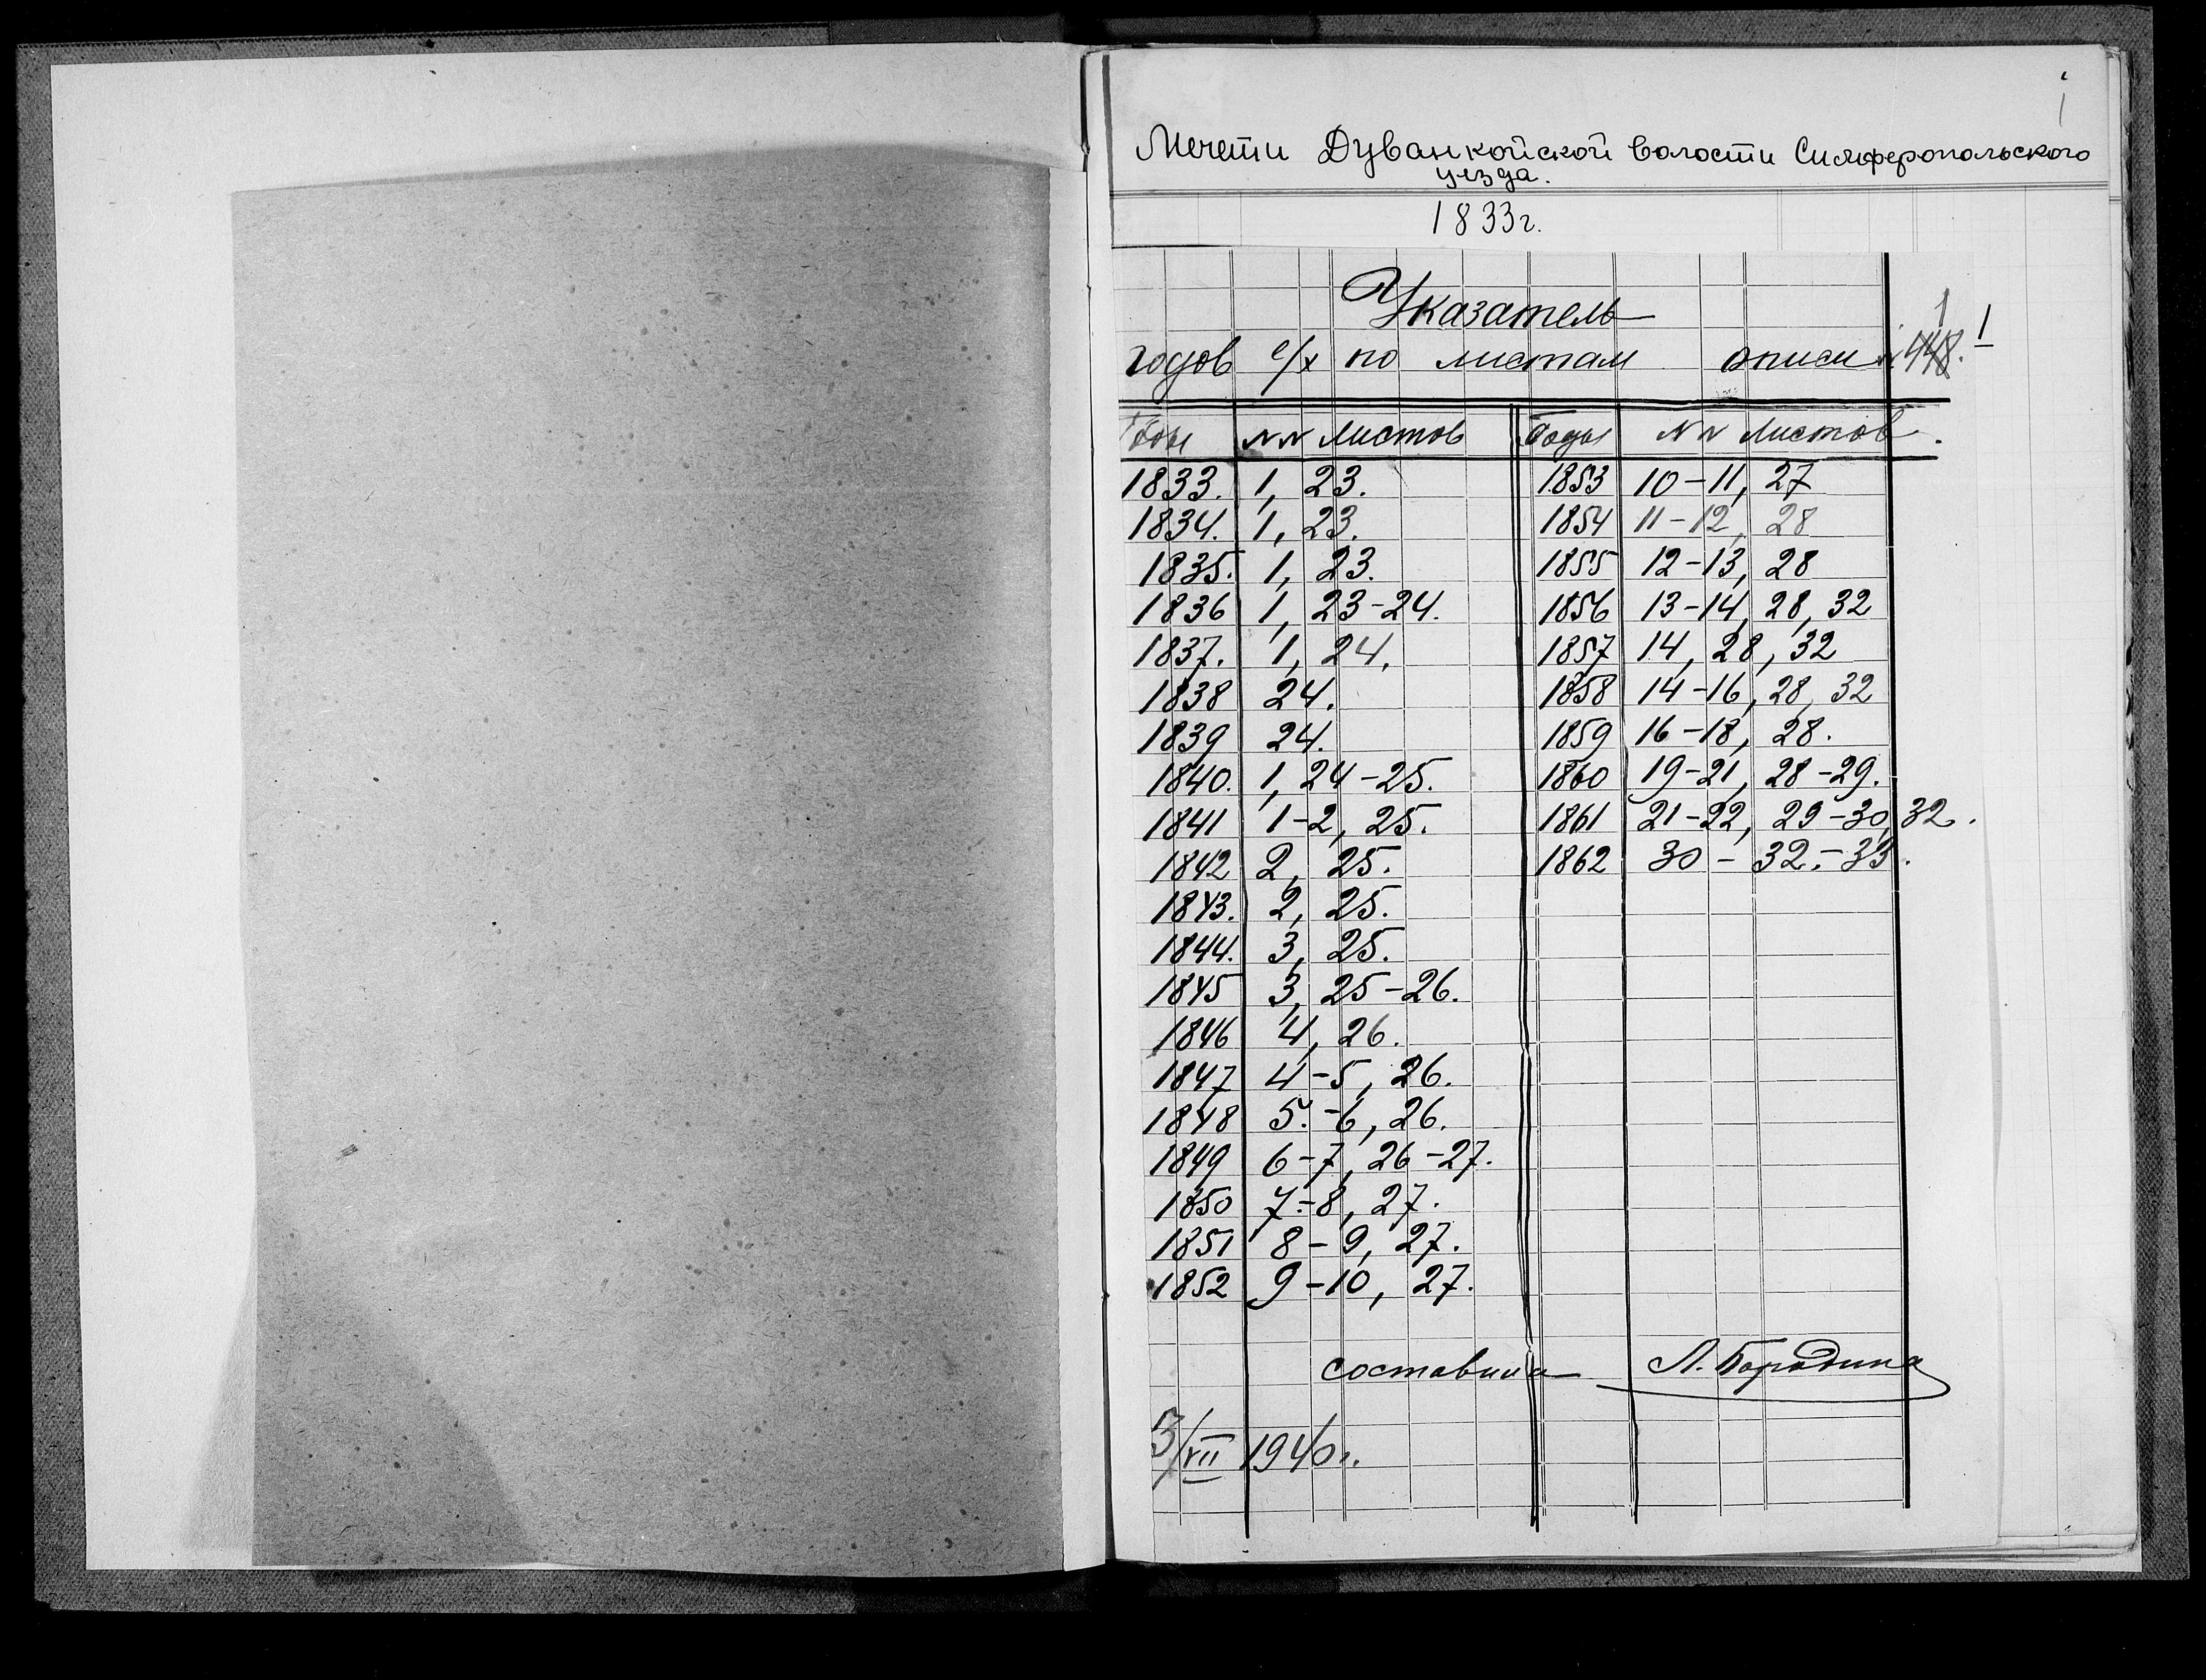 1
Мечети Дуванкойской волости Симферопольского
уезда.
1833г.
Указатель
1
годов е/х по листам описи 448. 1
Годы NN листов Годы NN листов.
1833. 1, 23. 1853 10-11, 27
1834. 1, 23. 1854 11-12, 28
1835. 1, 23. 1855 12-13, 28
1836 1, 23-24. 1856 13-14, 28, 32
1837. 1, 24. 1857 14, 28, 32
1838 24. 1858 14-16, 28, 32
1839 24. 1859 16-18, 28.
1840. 1, 24-25. 1860 19-21, 28-29.
1841 1-2, 25. 1861 21-22, 29-30, 32.
1842 2, 25. 1862 30-32.-33.
1843. 2, 25.
1844. 3, 25.
1845 3, 25-26.
1846 4, 26.
1847 4-5, 26.
1848 5.-6, 26.
1849 6-7, 26-27.
1850 7-8, 27.
1851 8-9, 27.
1852 9-10, 27.
составила Л. Бородина
3/VII 1940г.